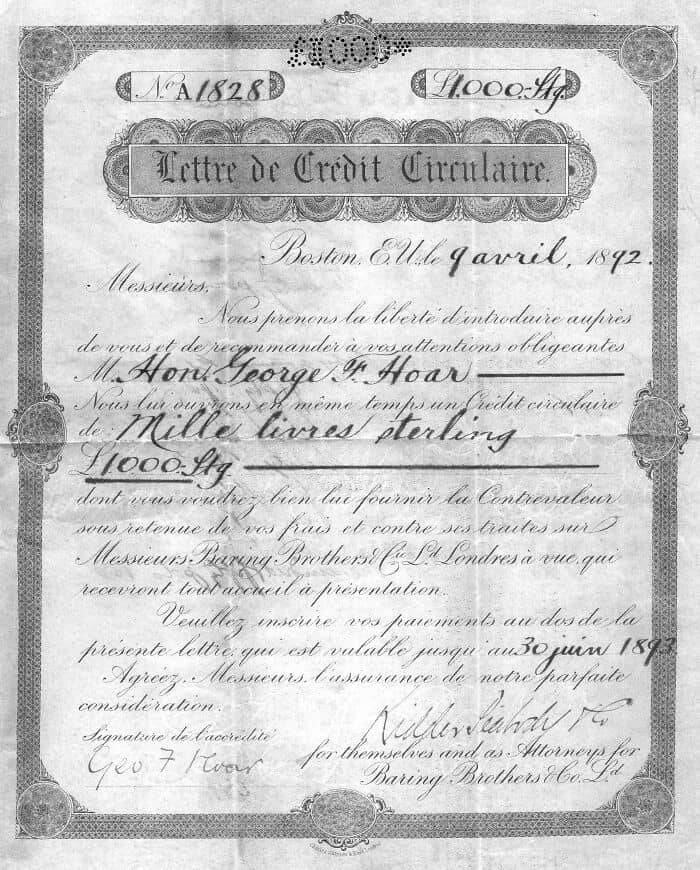 £1000
No A1828
£1,000.-Stg.
Lettre de Crédit Circulaire.
Boston, E.U. le 9 avril, 1892.
Messieurs,
Nous prenons la liberté d'introduire auprès
de vous et de recommander à vos attentions obligeantes
M. Hon. George F. Hoar
Nous lui ouvrons en même temps un Crédit circulaire
de: Mille livres sterling
£1000.-Stg
dont vous voudrez bien lui fournir la Contrevaleur
sous retenue de vos frais et contre ses traites sur
Messieurs Baring Brothers & Cie. Ld. Londres à vue, qui
recevront tout accueil à présentation.
Veuillez inscrire vos paiements au dos de la
présente lettre, qui est valable jusqu'au 30 juin 1893
Agréez, Messieurs, l'assurance de notre parfaite
considération.
Kidder Peabody & Co
Signature de l'accrédité
Geo F Hoar
for themselves and as Attorneys for
Baring Brothers & Co. Ld.